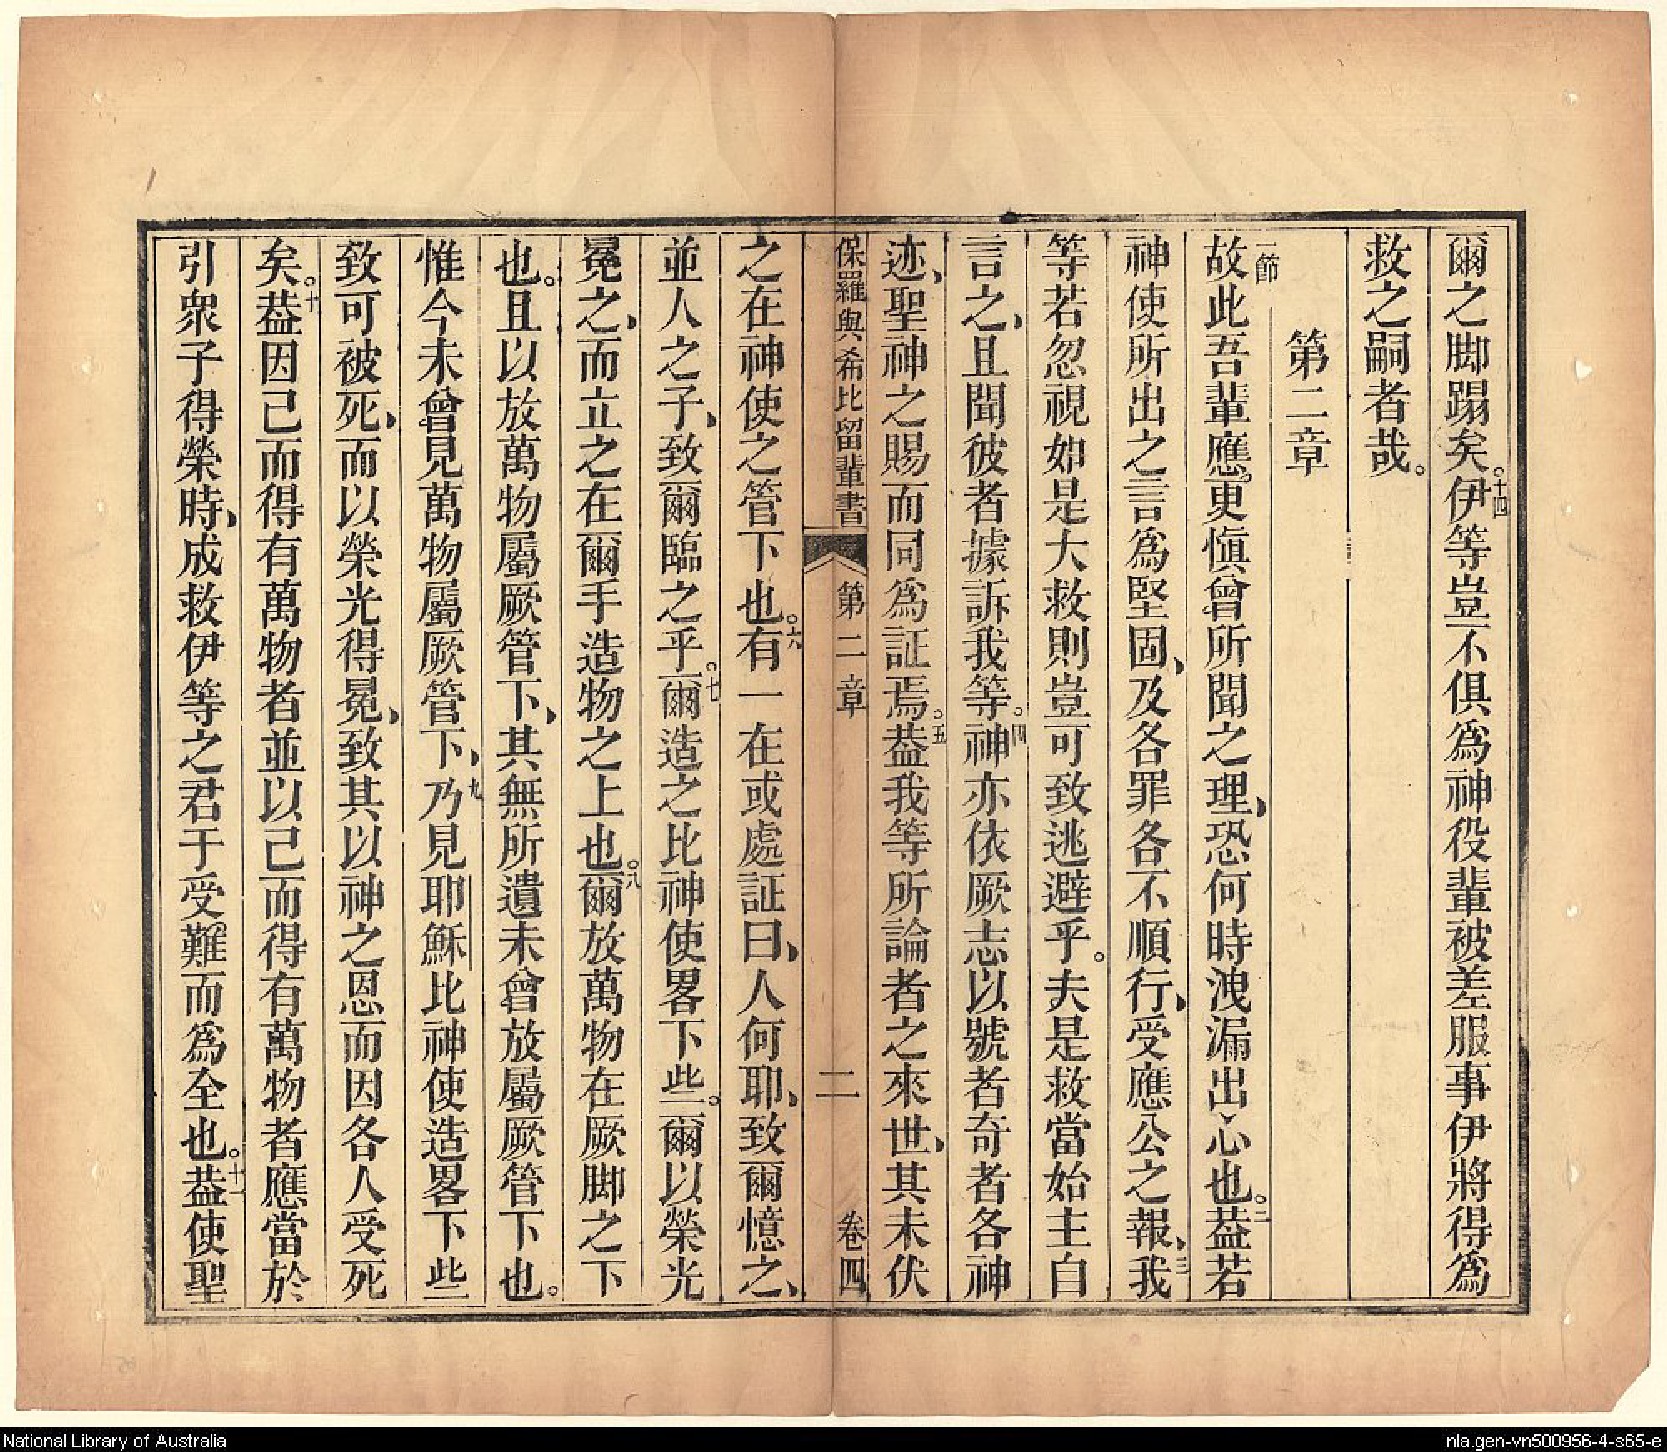 爾之脚蹋矣。十四伊等豈不俱爲神役輩被差服事伊將得爲
救之嗣者哉。
第二章
一節故此吾輩應更愼曾所聞之理、恐何時洩漏出心也。二葢若
神使所出之言爲堅固、及各罪各不順行、受應公之報、三我
等若忽視如是大救則豈可致逃避乎。夫是救當始主自
言之、且聞彼者據訴我等。四神亦依厥志以號者奇者各神
迹、聖神之賜而同爲証焉。五葢我等所論者之來世、其未伏
保羅與希比留輩書 第二章 二 卷四
之在神使之管下也。六有一在或處証曰、人何耶、致爾憶之、
並人之子、致爾臨之乎。七爾造之比神使畧下些。爾以榮光
冕之、而立之在爾手造物之上也。八爾放萬物在厥脚之下
也。且以放萬物屬厥管下、其無所遺未曾放屬厥管下也。
惟今未曾見萬物屬厥管下、九乃見耶穌比神使造畧下些
致可被死、而以榮光得冕、致其以神之恩而因各人受死
矣。十葢因己而得有萬物者並以己而得有萬物者應當於
引衆子得榮時、成救伊等之君于受難而爲全也。十一葢使聖
National Library of Australia
nla.gen-vn500956-4-s65-e